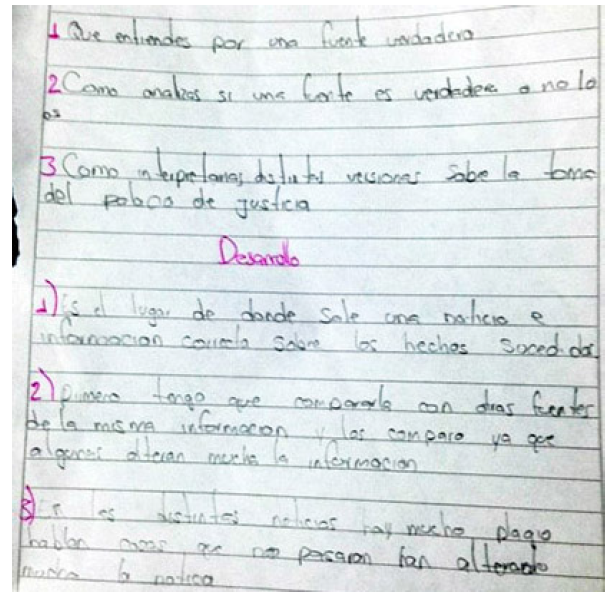 1 Que entiendes por una fuente verdadera
2 Como analizas si una fuente es verdadera o no lo
es
3 Como interpretarias distintas versiones sobe la toma
del palacio de justicia
Desarrollo
1) Es el lugar de donde sale una noticia e
informacion correcta sobre los hechos sucedidos
2) Primero tengo que compararla con otras fuentes
de la misma informacion y las comparo ya que
algunas alteran mucho la informacion
3) En las distintas noticias hay mucho plagio
hablan cosas que no pasaron han alterando
mucho la noticia